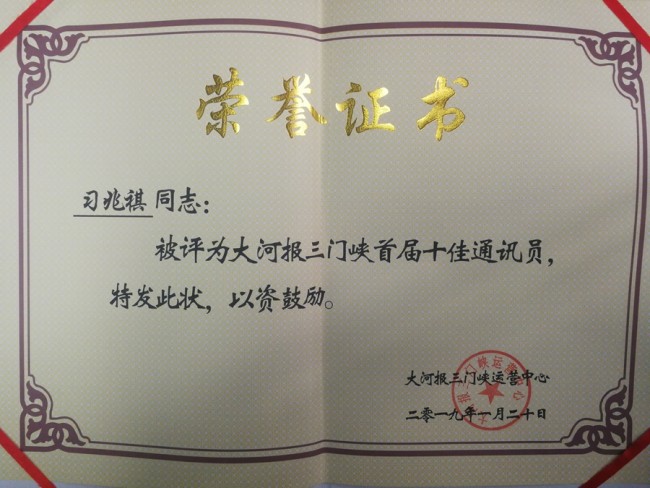 荣誉证书
习兆祺同志：
被评为大河报三门峡首届十佳通讯员，
特发此状，以资鼓励。
大河报三门峡运营中心
二零一九年一月二十日